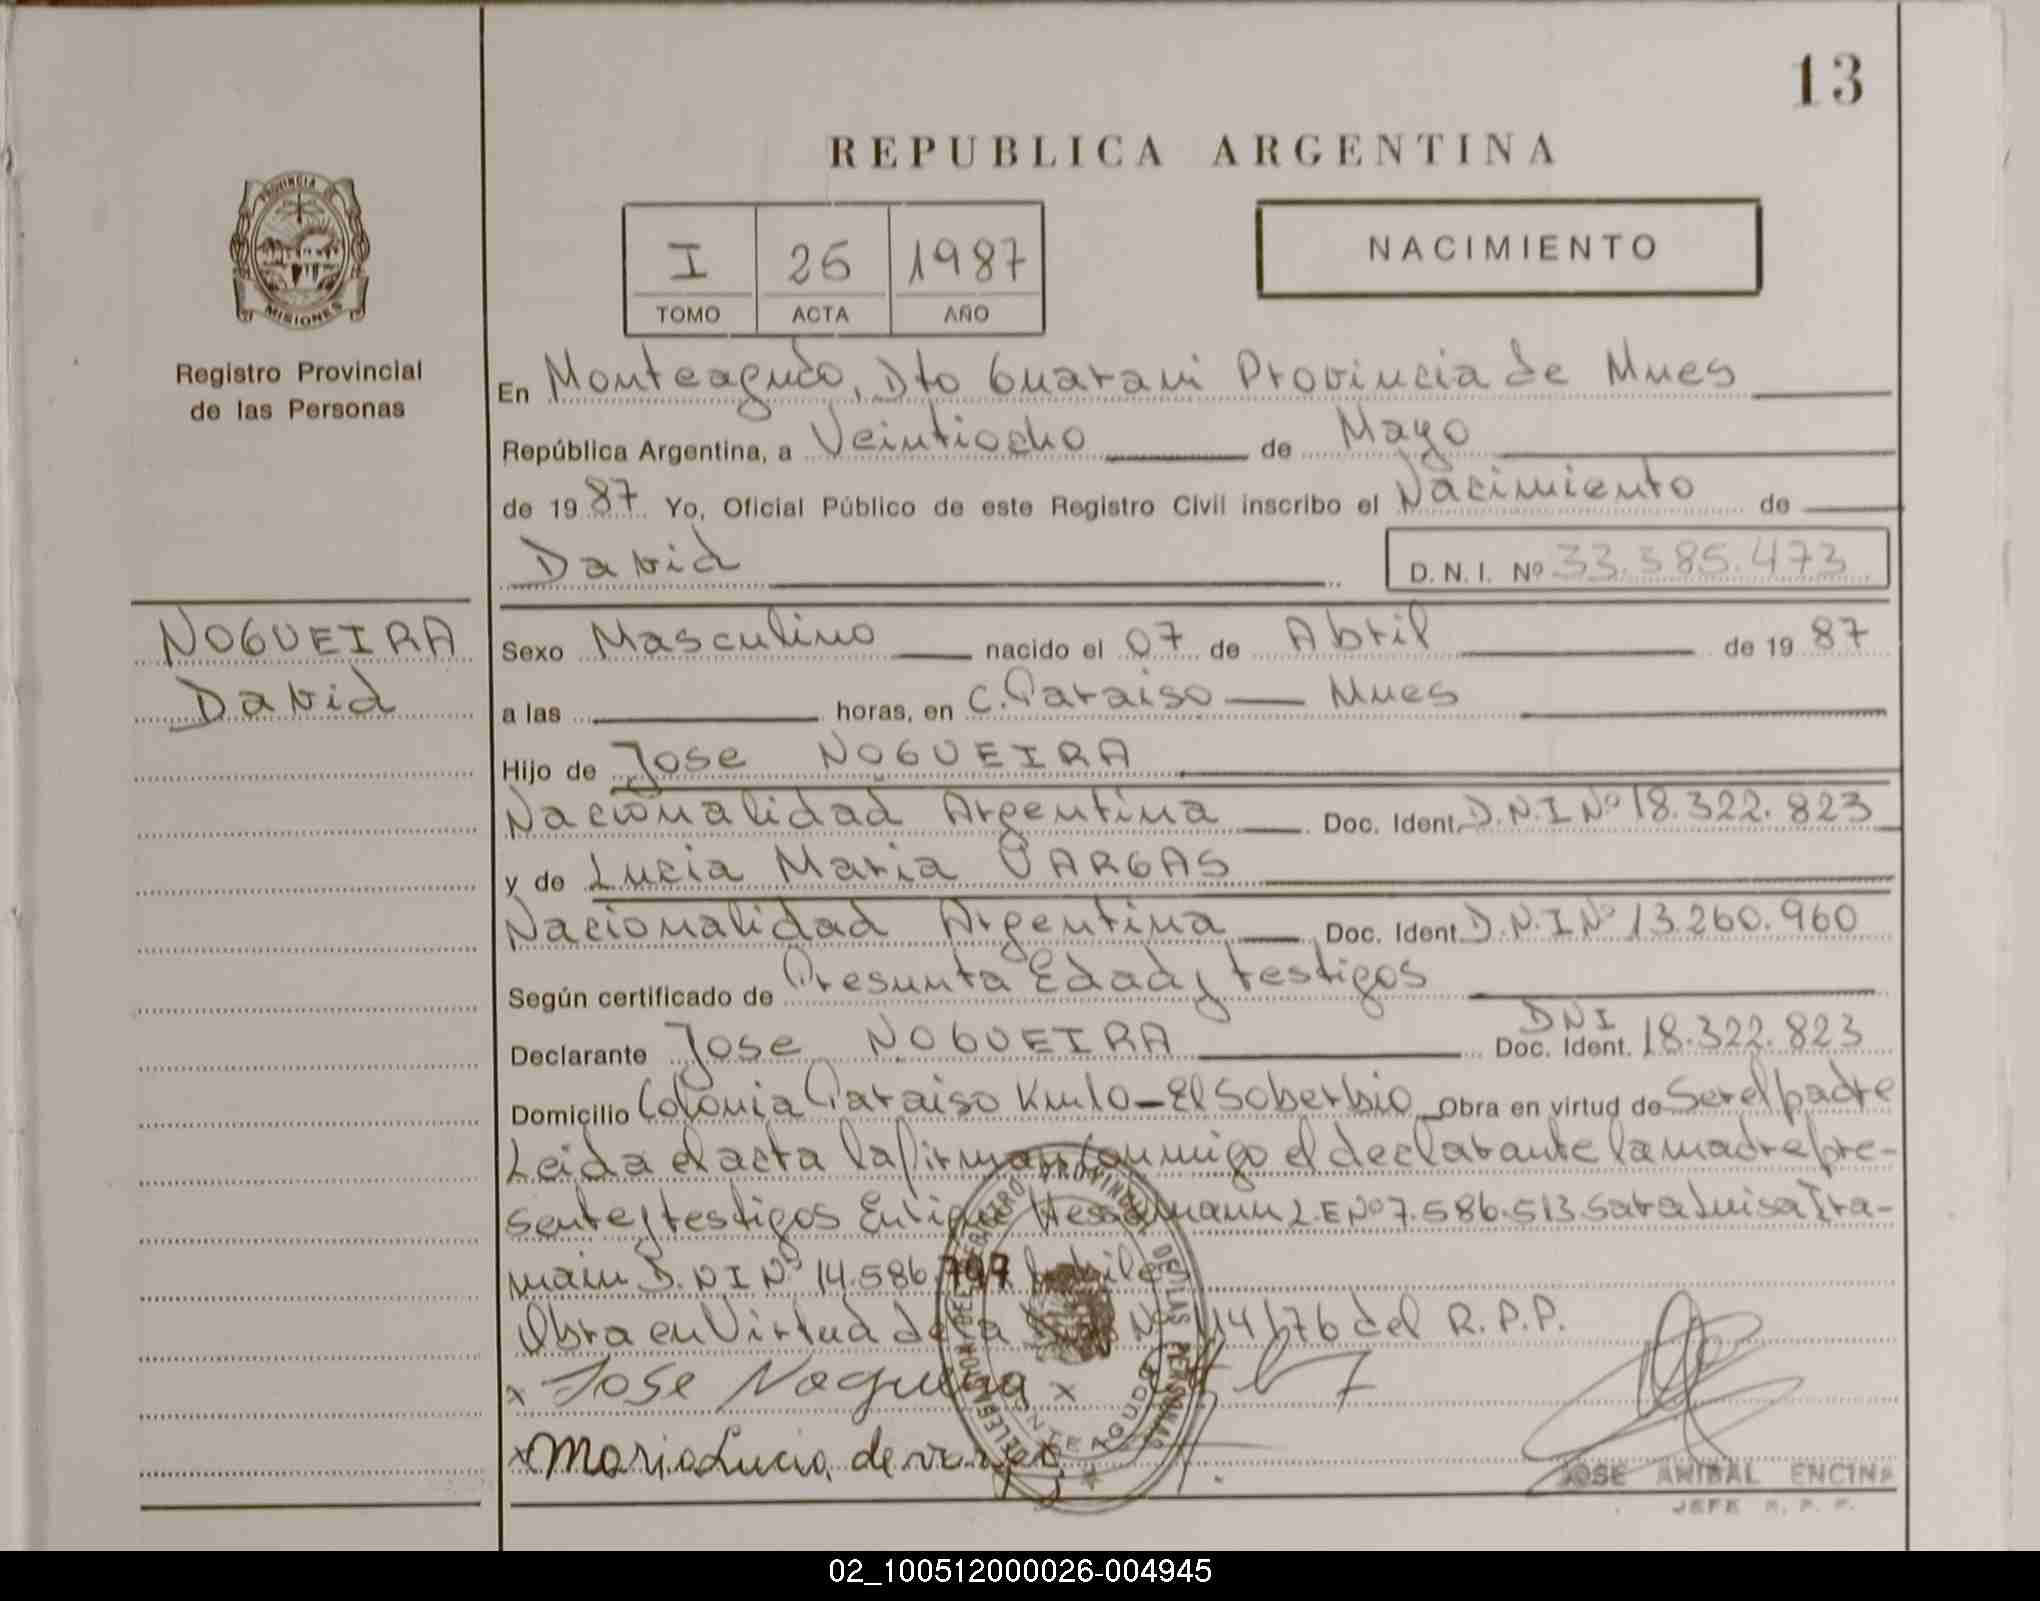 13
REPUBLICA ARGENTINA
PROVINCIA DE
MISIONES
Registro Provincial
de las Personas
I 26 1987
TOMO ACTA AÑO
NACIMIENTO
En Monteagudo, Dto Guarani Provincia de Mnes
República Argentina, a Veintiocho de Mayo
de 1987. Yo, Oficial Público de este Registro Civil inscribo el Nacimiento de
David D. N. I. Nº 33.385.473
NOGUEIRA
David
Sexo Masculino nacido el 07 de Abril de 1987
a las horas, en C. Paraiso — Mnes
Hijo de Jose NOGUEIRA
Nacionalidad Argentina Doc. Ident. D.N.I Nº 18.322.823
y de Lucia Maria VARGAS
Nacionalidad Argentina Doc. Ident. D.N.I Nº 13.260.960
Según certificado de Presunta Edad y testigos
Declarante Jose NOGUEIRA Doc. Ident. DNI 18.322.823
Domicilio Colonia Paraiso - El Soberbio Obra en virtud de Ser el padre
Leida el acta la firman conmigo el declarante la madre pre-
sente y testigos Enrique L.E Nº 7.586.513 Sara Luisa Tra-
main D.N I Nº 14.586.797
Obra en Virtud de la Nº 114/76 del R.P.P.
x Jose Nogueira x
x Maria Lucia de vargas
DELEGACION DEL REGISTRO PROVINCIAL DE LAS PERSONAS
MONTE AGUDO
JOSE ANIBAL ENCINA
JEFE R. P. P.
02_100512000026-004945